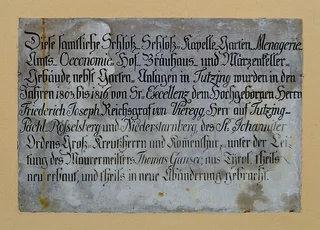 Diese samtliche Schloß, Schloß-Kapelle, Garten, Menagerie,
Amts, Oeconomie, Hof, Bräuhaus und Märzenkeller,
Gebäude nebst Garten-Anlagen in Tutzing wurden in den
Jahren 1802 bis 1816 von Sr. Excellenz dem Hochgebornen Herrn
Friederich Joseph Reichsgraf von Vieregg, Herr auf Tutzing-
Pächl, Rößelsberg und Niederstarnberg, des St. Johanniter
Ordens Groß-Kreutzherrn und Komenthur, unter der Lei-
tung des Maurermeisters Thomas Ganser, aus Tyrol, theils
neu erbaut, und theils in neue Abänderung gebracht.